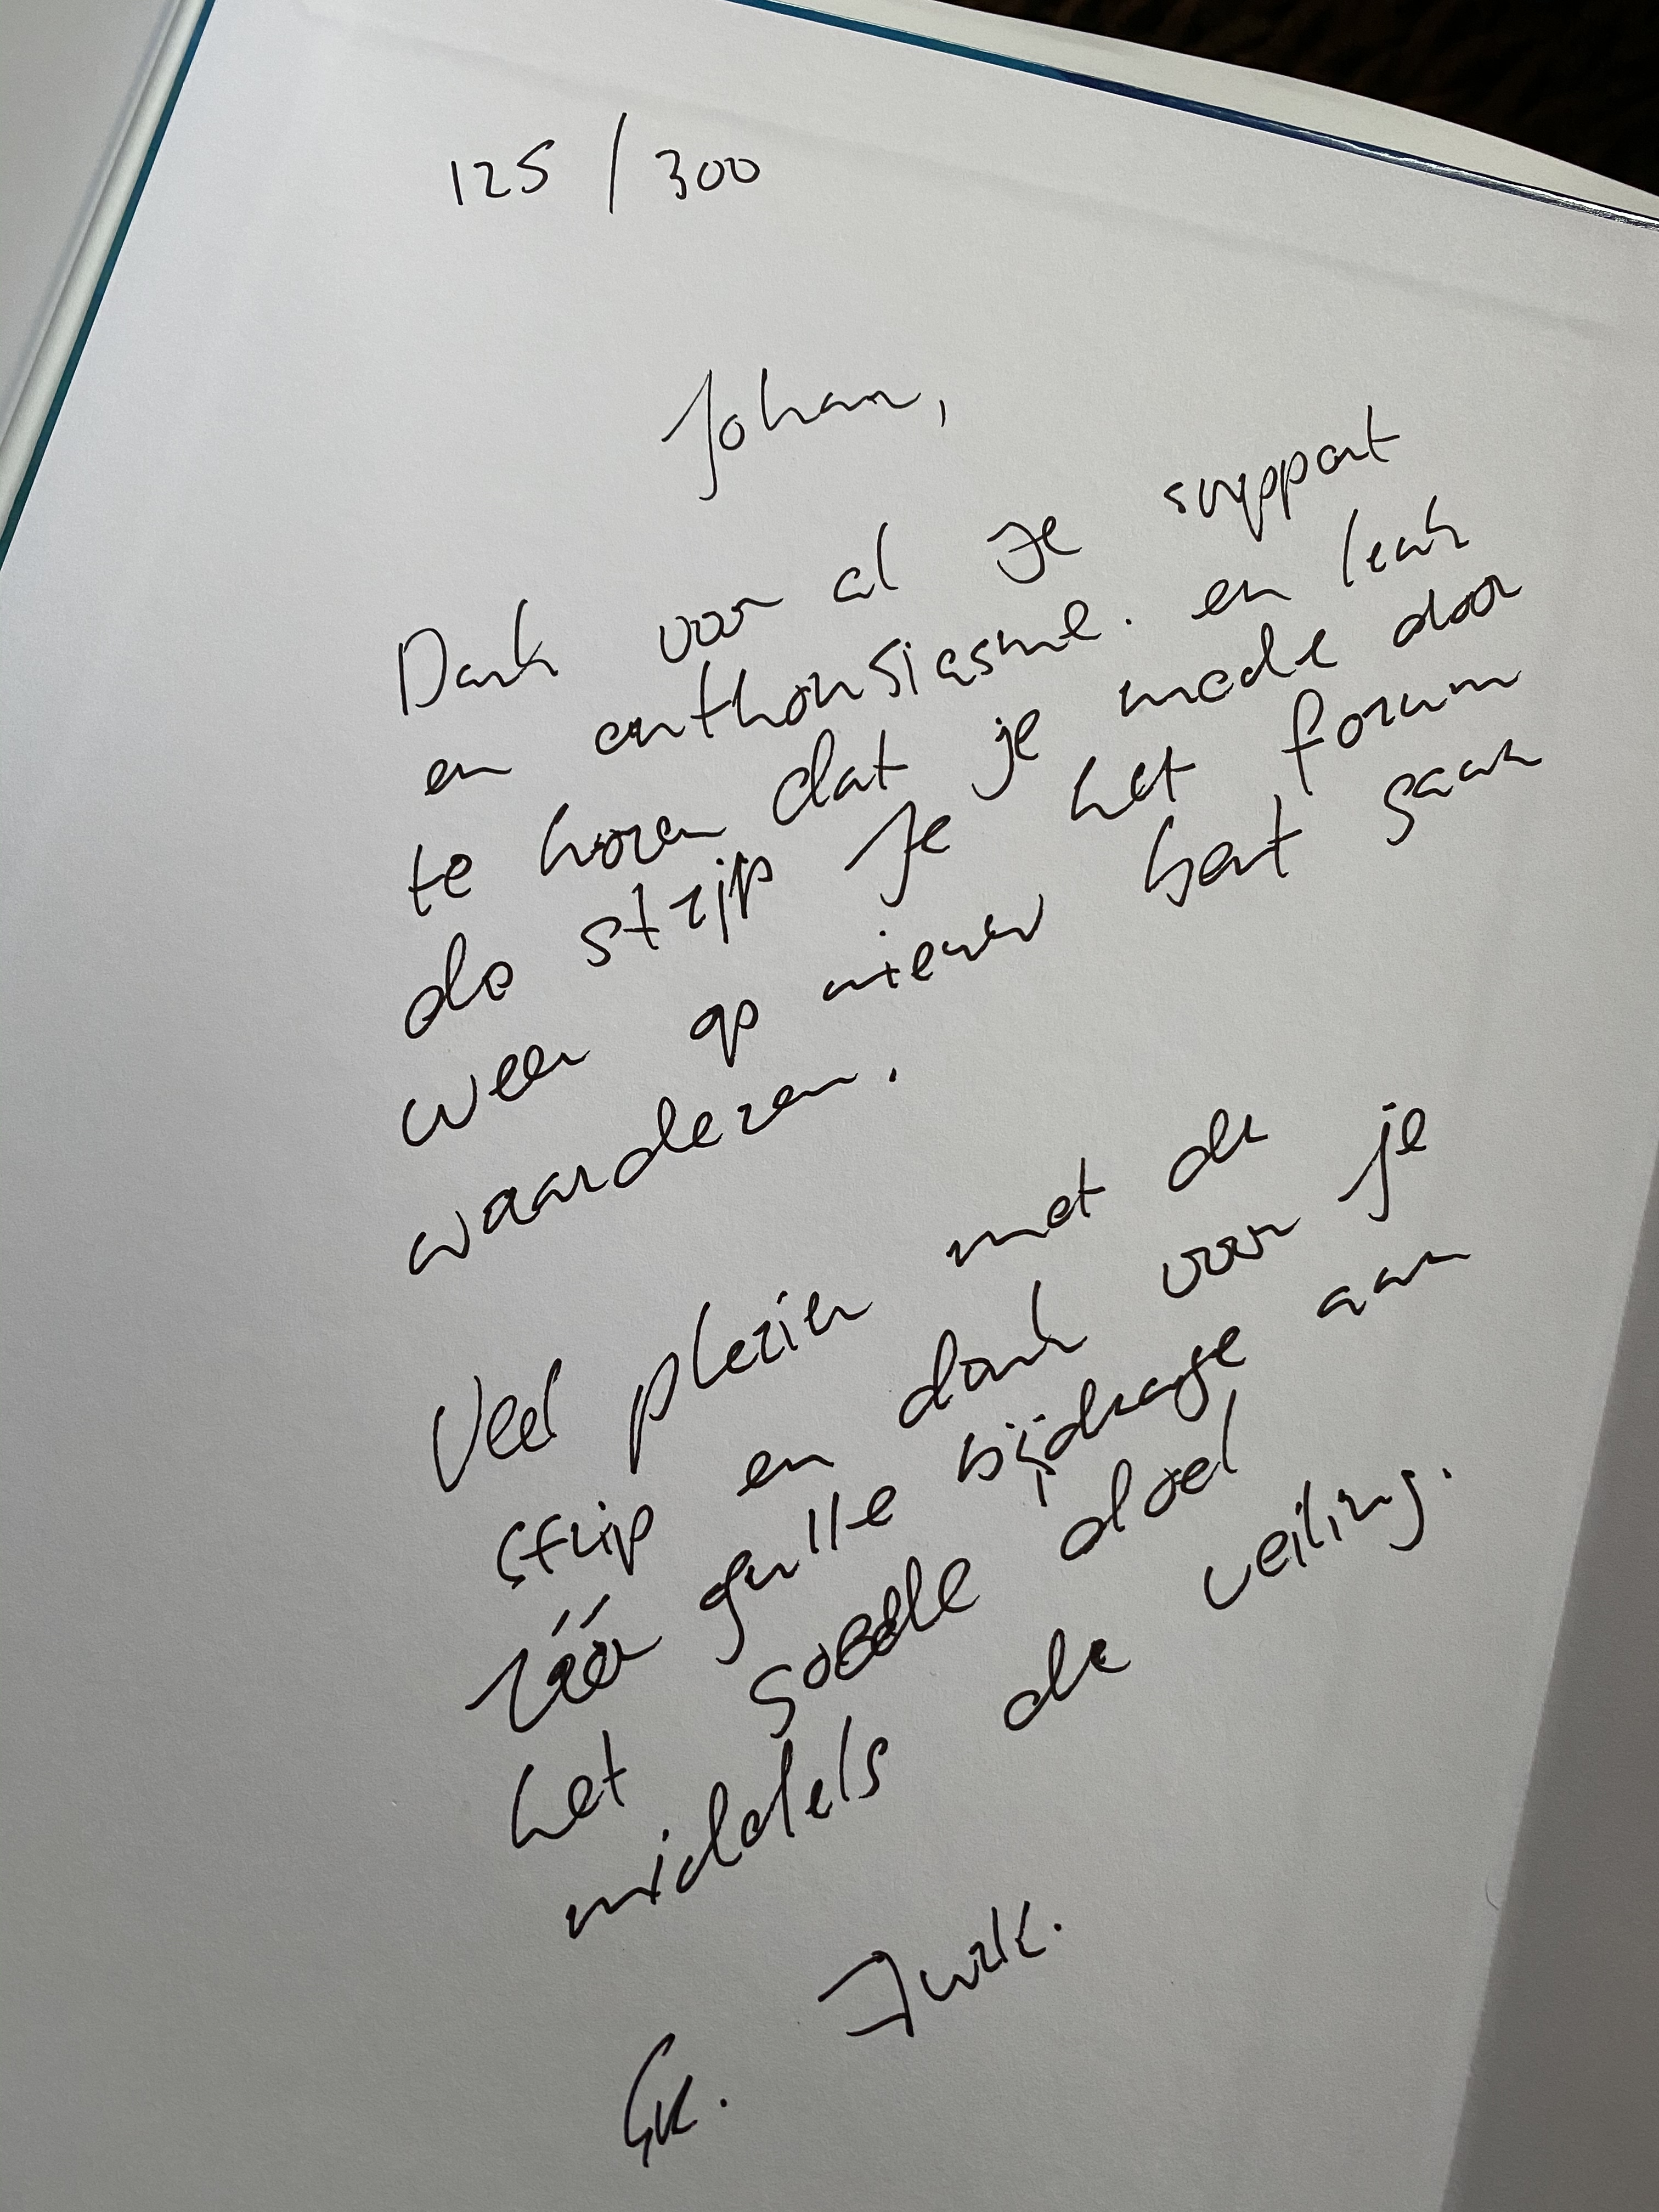 125 / 300
Johan,
Dank voor al je support
en enthousiasme. en leuk
te horen dat je mede door
de strijp je het forum
weer op nieuw bent gaan
waarderen.
Veel plezier met de
strip en dank voor je
zéér gulle bijdrage aan
het goede doel
middels de veiling.
Gr. Jurk.